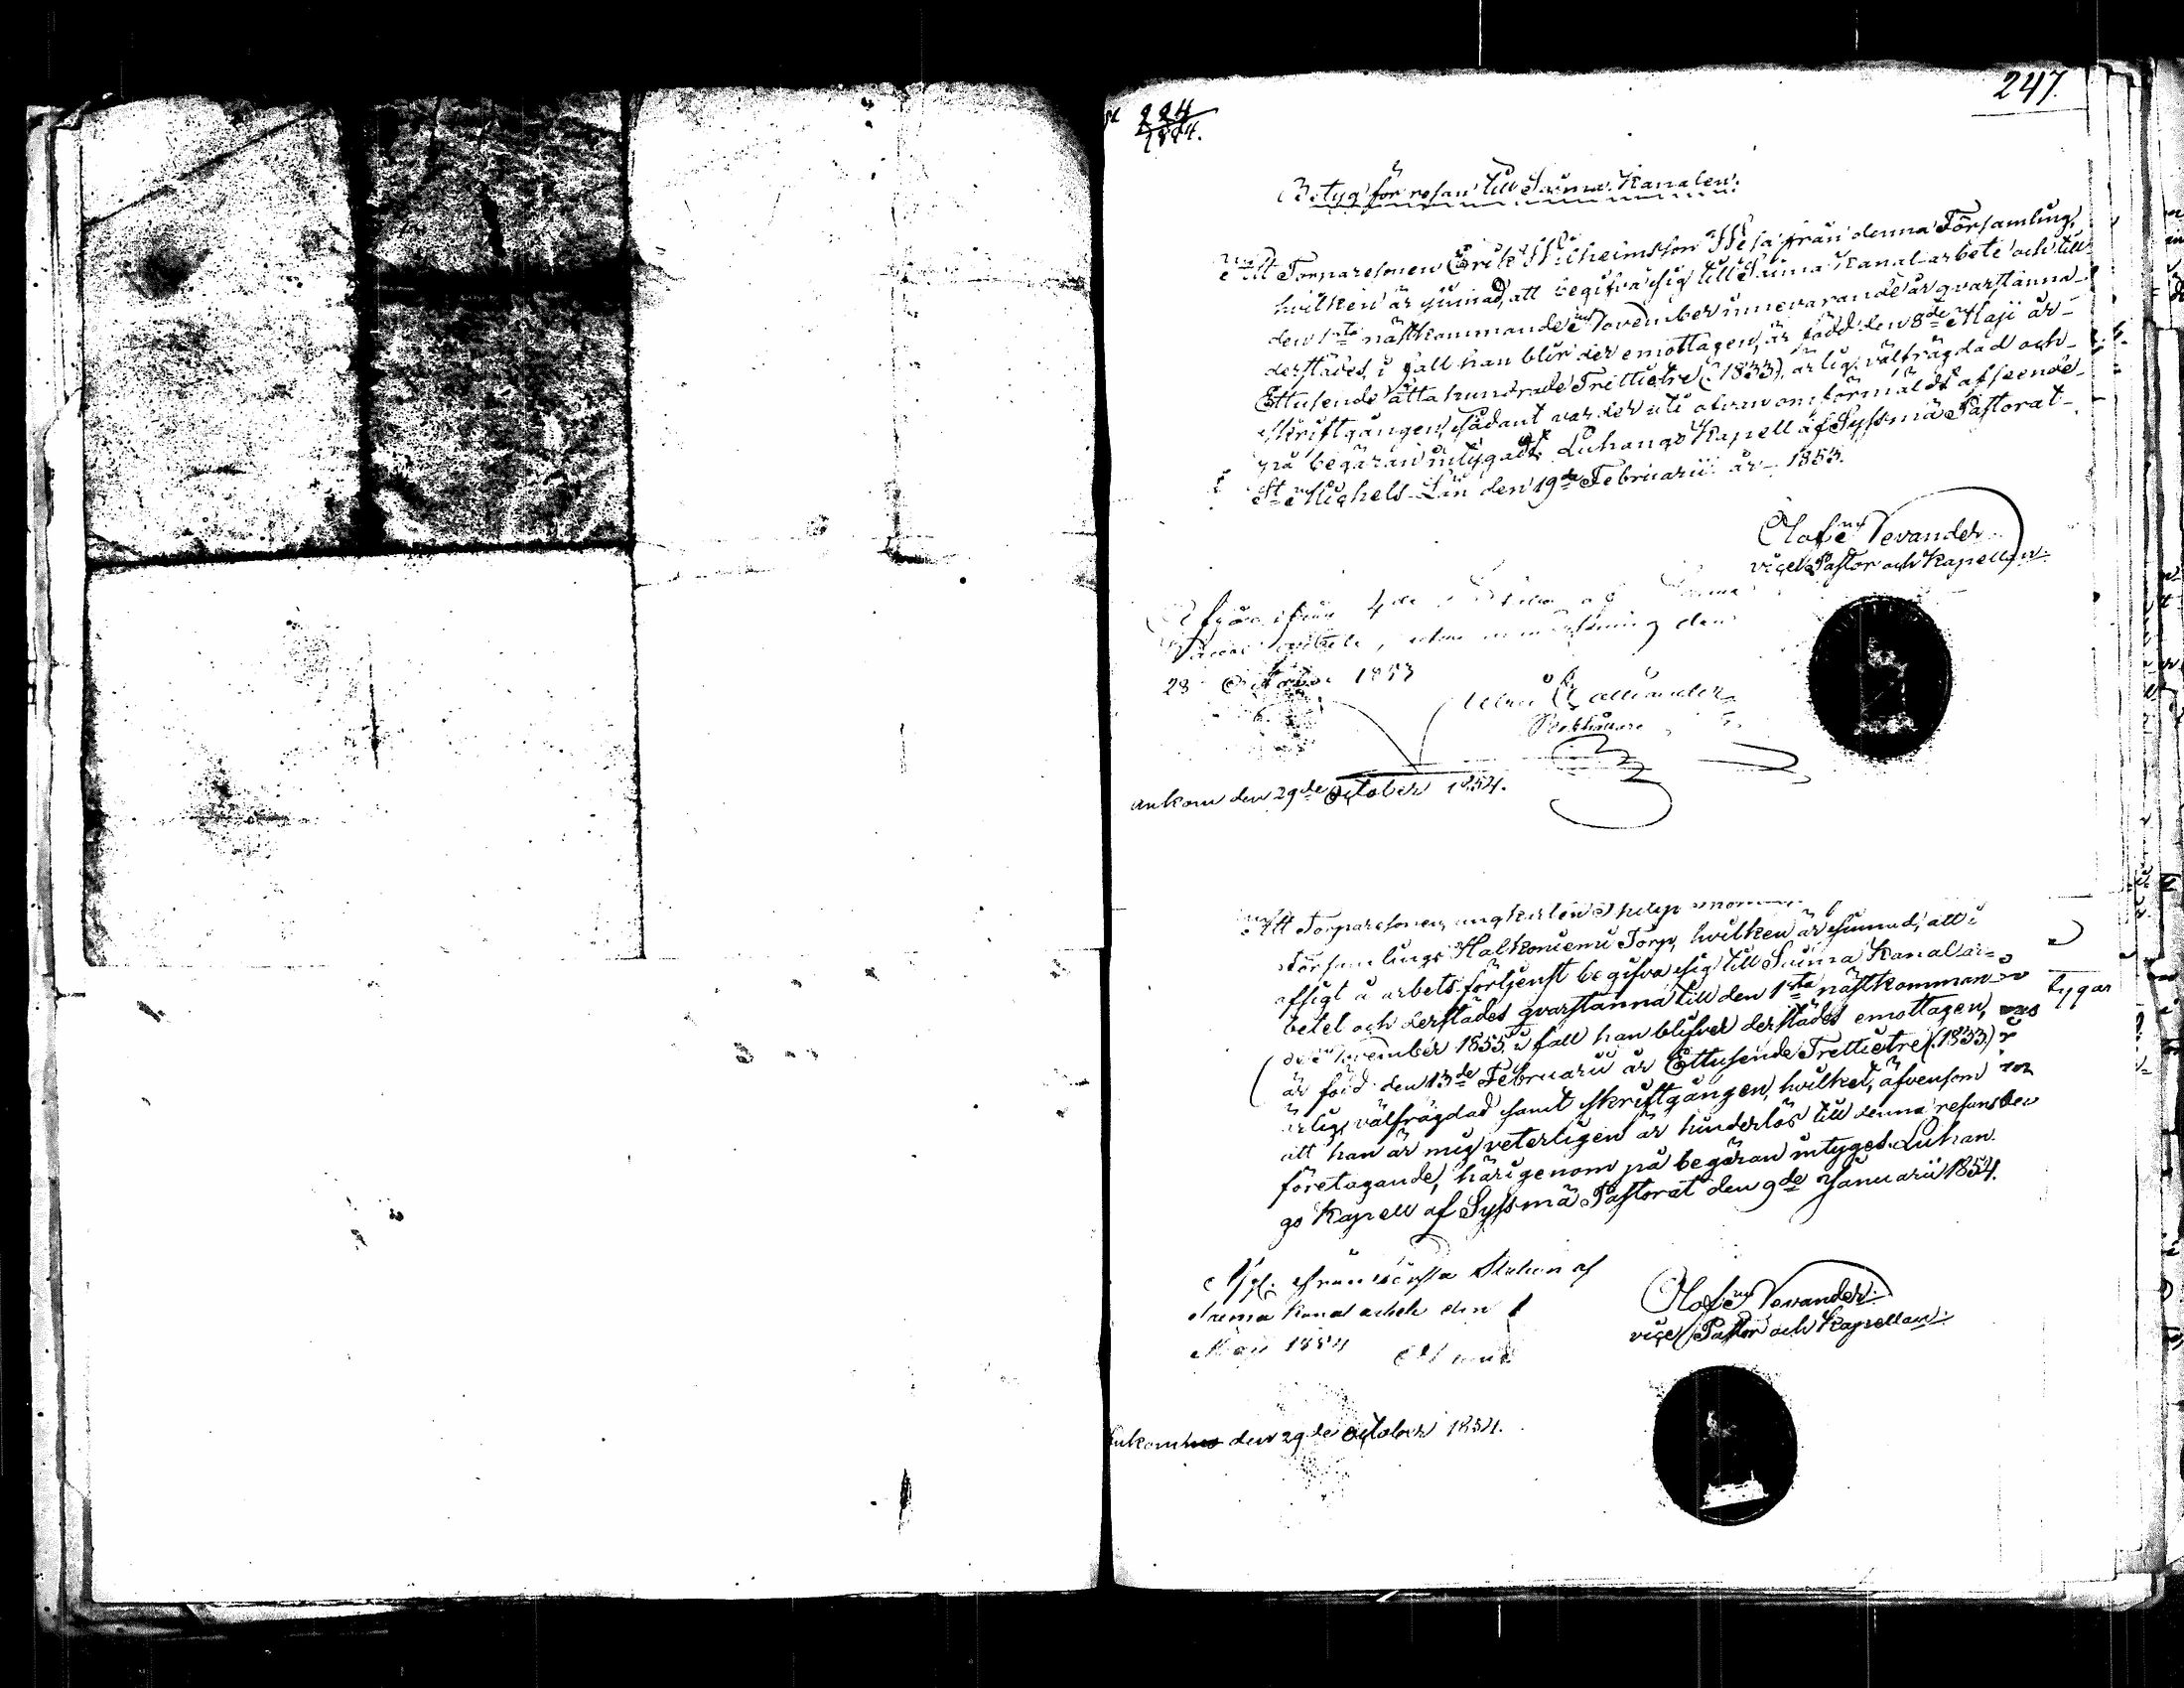 247.
224
1854.
Betyg för resan till Saima Kanalen.
Att Torparesonen Erik Wilhelmsson Wesa från denna Församling,
hvilken är sinnad, att begifva sig till Saima Kanal-arbete och till
den 1sta nästkommande November innevarande år qvarstanna
derstädes, i fall han blir der emottagen, är född den 8de Maji år
Ettusende åtta hundrade Trettietre (1833), ärlig, välfrägdad och
skriftgången, sådant varder uti ofvanomförmäldt afseende
på begäran intygadt. Luhango Kapell af Syssmä Pastorat
i St Michels Län den 19de Februarii år 1853.
Olof Nevander
vice Pastor och Kapellan.
ifrån 4de
Kanal arbete, den
28 October 1853
Bokhållare
ankom den 29de October 1854.
Att Torparesonen, ungkarlen Philip
Församlings Halkoniemi Torp, hvilken är sinnad, att i
afsigt å arbets-förtjenst begifva sig till Saima Kanal ar-
betet och derstädes qvarstanna till den 1sta nästkomman-
de November 1855, i fall han blifver derstädes emottagen,
tygar
är född den 13de Februarii år Ettusende Trettietre (1833.)
ärlig, välfrägdad samt skriftgången, hvilket, äfvensom
att han är mig veterligen är hinderlös till denna resans
företagande, härigenom på begäran intygas. Luhan-
go Kapell af Syssmä Pastorat den 9de Januarii 1854.
från Station af
Saima Kanal arbete den 1
Maji 1854
Olof Nevander
vice Pastor och Kapellan.
Ankom den 29de October 1854.